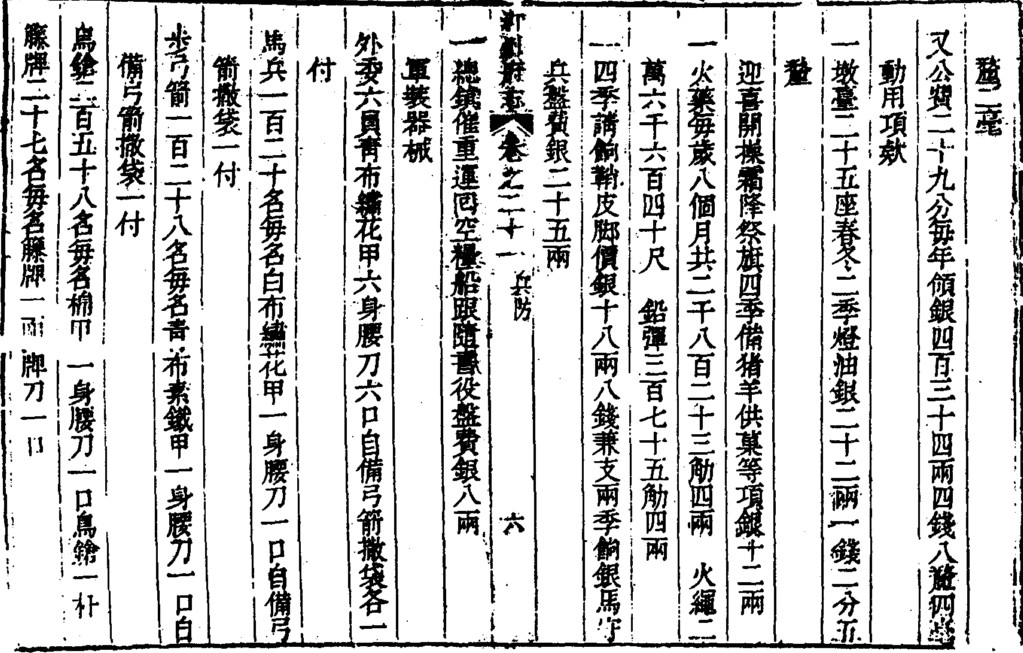 釐二毫
又公費二十九分每年領銀四百三十四兩四錢八釐四毫
動用項欵
一墩臺二十五座春冬二季燈油銀二十二兩一錢二分五
釐
迎喜開操霜降祭旗四季備猪羊供菓等項銀十二兩
一火藥每歲八個月共二千八百二十三觔四兩　火繩二
萬六千六百四十尺　鉛彈三百七十五觔四兩
一四季請餉鞘皮脚價銀十八兩八錢兼支兩季餉銀馬守
兵盤費銀二十五兩
府志　卷之二十一　兵防　六
一總鎮催重運回空糧船跟隨書役盤費銀八兩
軍裝器械
外委六員青布繡花甲六身腰刀六口自備弓箭撒袋各一
付
馬兵一百二十名每名白布繡花甲一身腰刀一口自備弓
箭撒袋一付
步弓箭一百二十八名每名青布素鐵甲一身腰刀一口自
備弓箭撒袋一付
鳥鎗二百五十八名每名棉甲一身腰刀一口鳥鎗一杆
籐牌二十七名每名籐牌一面牌刀一口